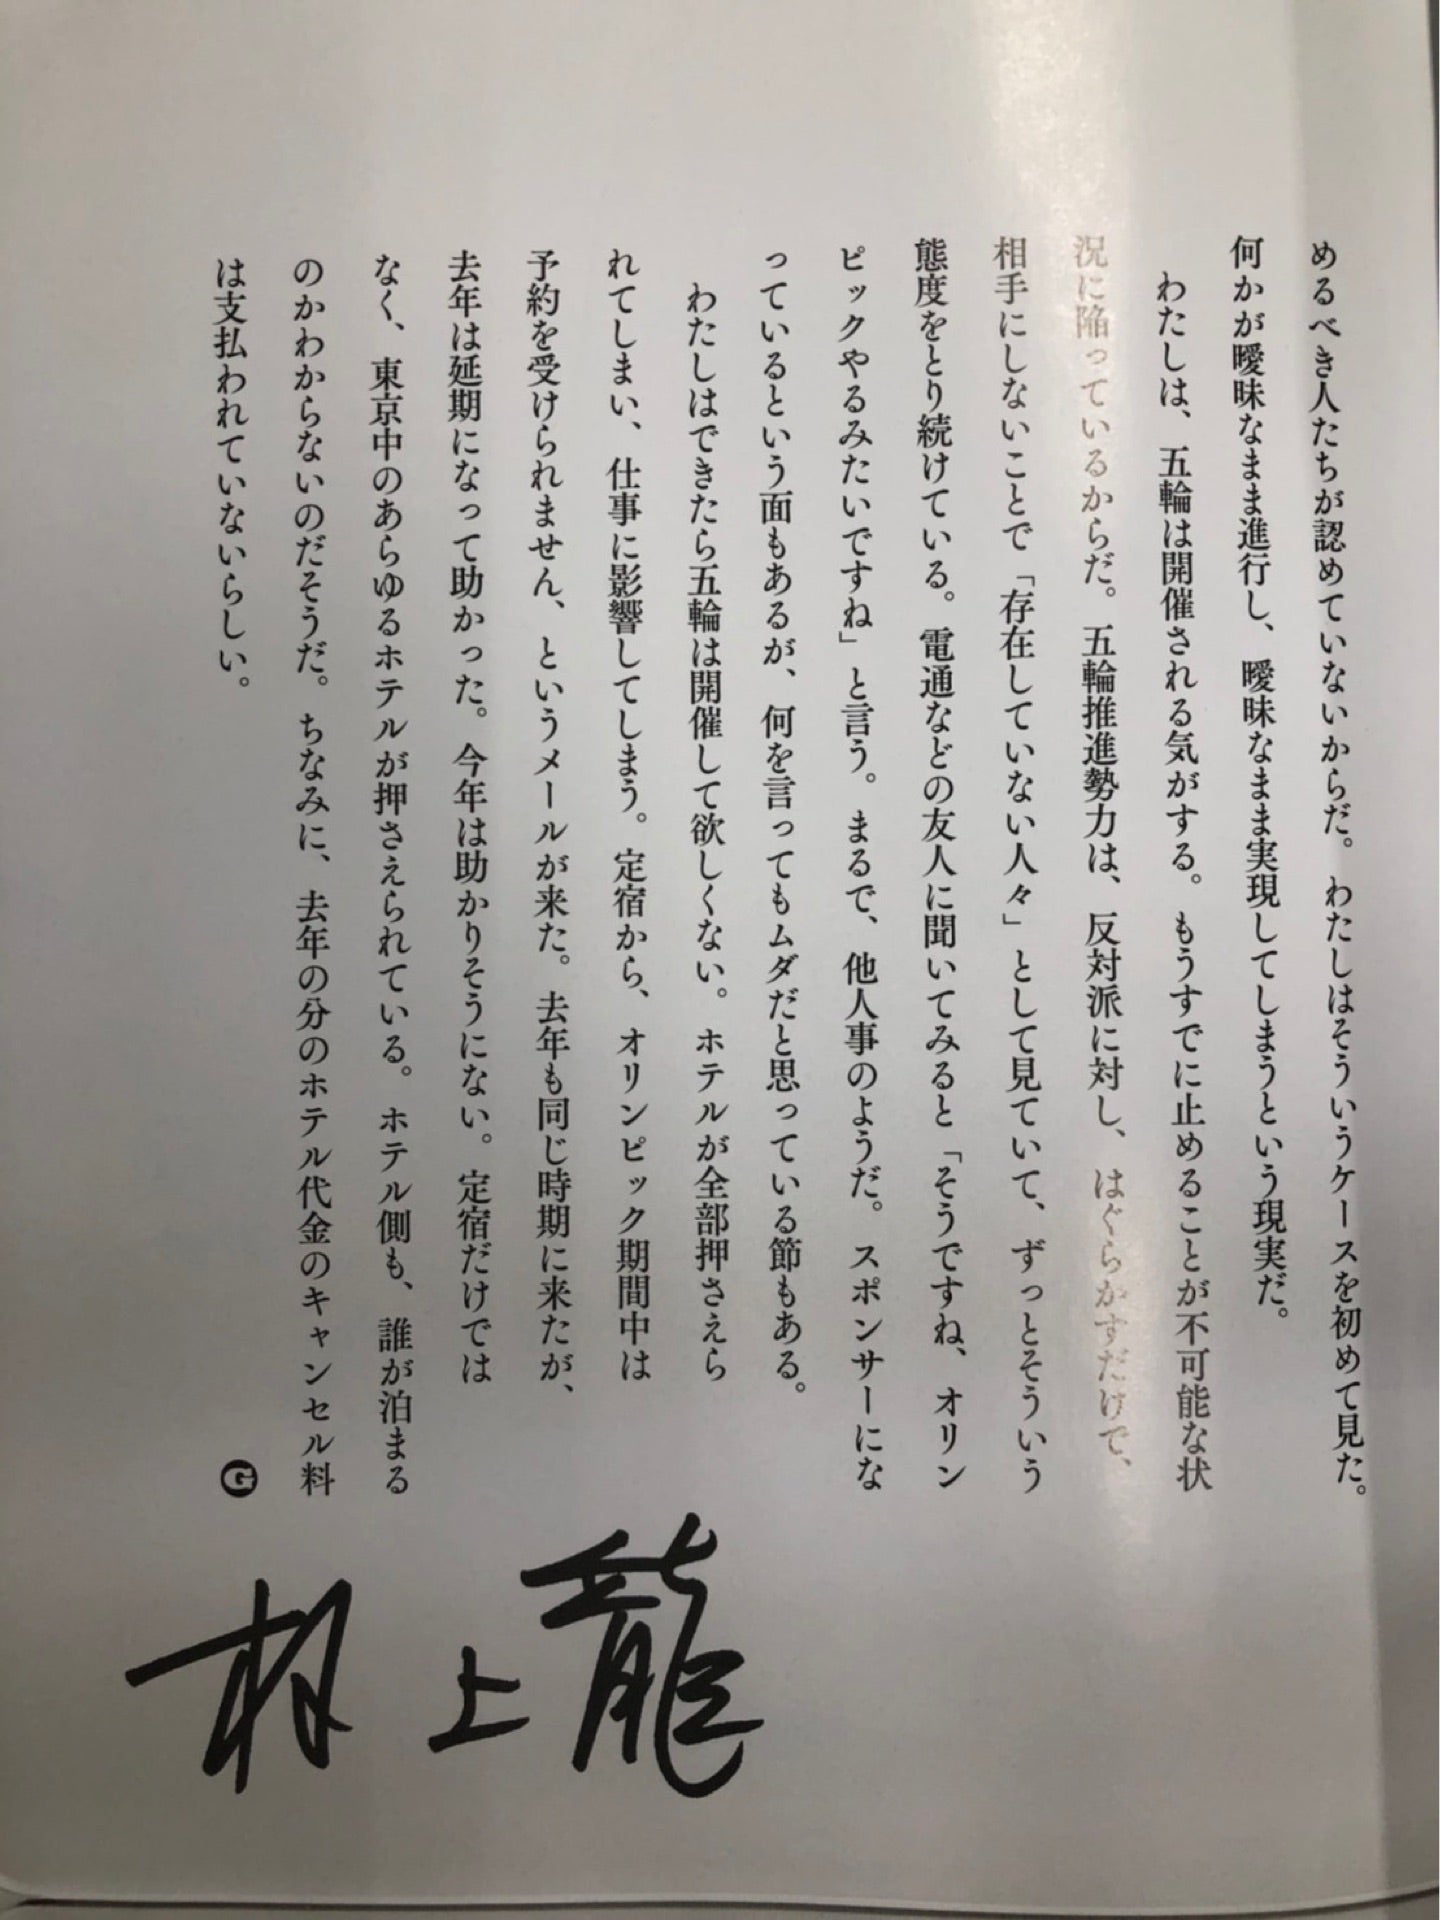 めるべき人たちが認めていないからだ。わたしはそういうケースを初めて見た。
何かが曖昧なまま進行し、曖昧なまま実現してしまうという現実だ。
わたしは、五輪は開催される気がする。もうすでに止めることが不可能な状
況に陥っているからだ。五輪推進勢力は、反対派に対し、はぐらかすだけで、
相手にしないことで「存在していない人々」として見ていて、ずっとそういう
態度をとり続けている。電通などの友人に聞いてみると「そうですね、オリン
ピックやるみたいですね」と言う。まるで、他人事のようだ。スポンサーにな
っているという面もあるが、何を言ってもムダだと思っている節もある。
わたしはできたら五輪は開催して欲しくない。ホテルが全部押さえら
れてしまい、仕事に影響してしまう。定宿から、オリンピック期間中は
予約を受けられません、というメールが来た。去年も同じ時期に来たが、
去年は延期になって助かった。今年は助かりそうにない。定宿だけでは
なく、東京中のあらゆるホテルが押さえられている。ホテル側も、誰が泊まる
のかわからないのだそうだ。ちなみに、去年の分のホテル代金のキャンセル料
は支払われていないらしい。
G
村上龍